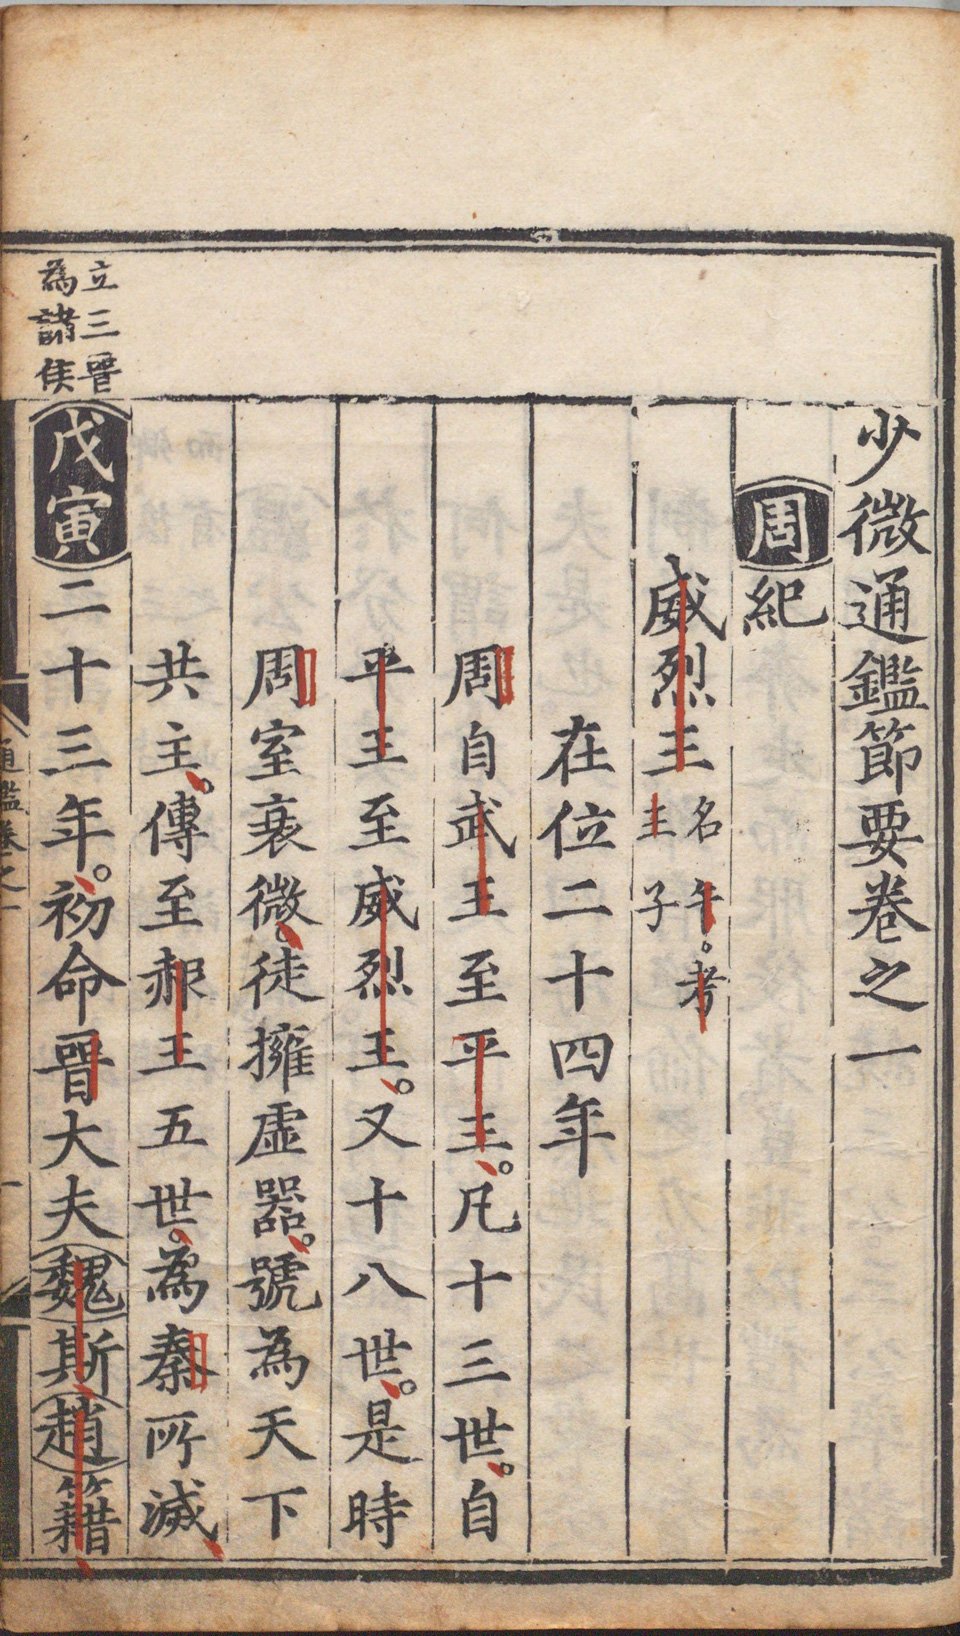 少微通鑑節要卷之一
周紀
威烈王 名午。考
王子
在位二十四年
周自武王至平王。凡十三世。自
平王至威烈王。又十八世。是時
周室衰微。徒擁虛器。號為天下
共主。傳至赧王五世。為秦所滅
立三晋
為諸侯
戊寅二十三年。初命晋大夫魏斯趙籍
通鑑卷之一
一